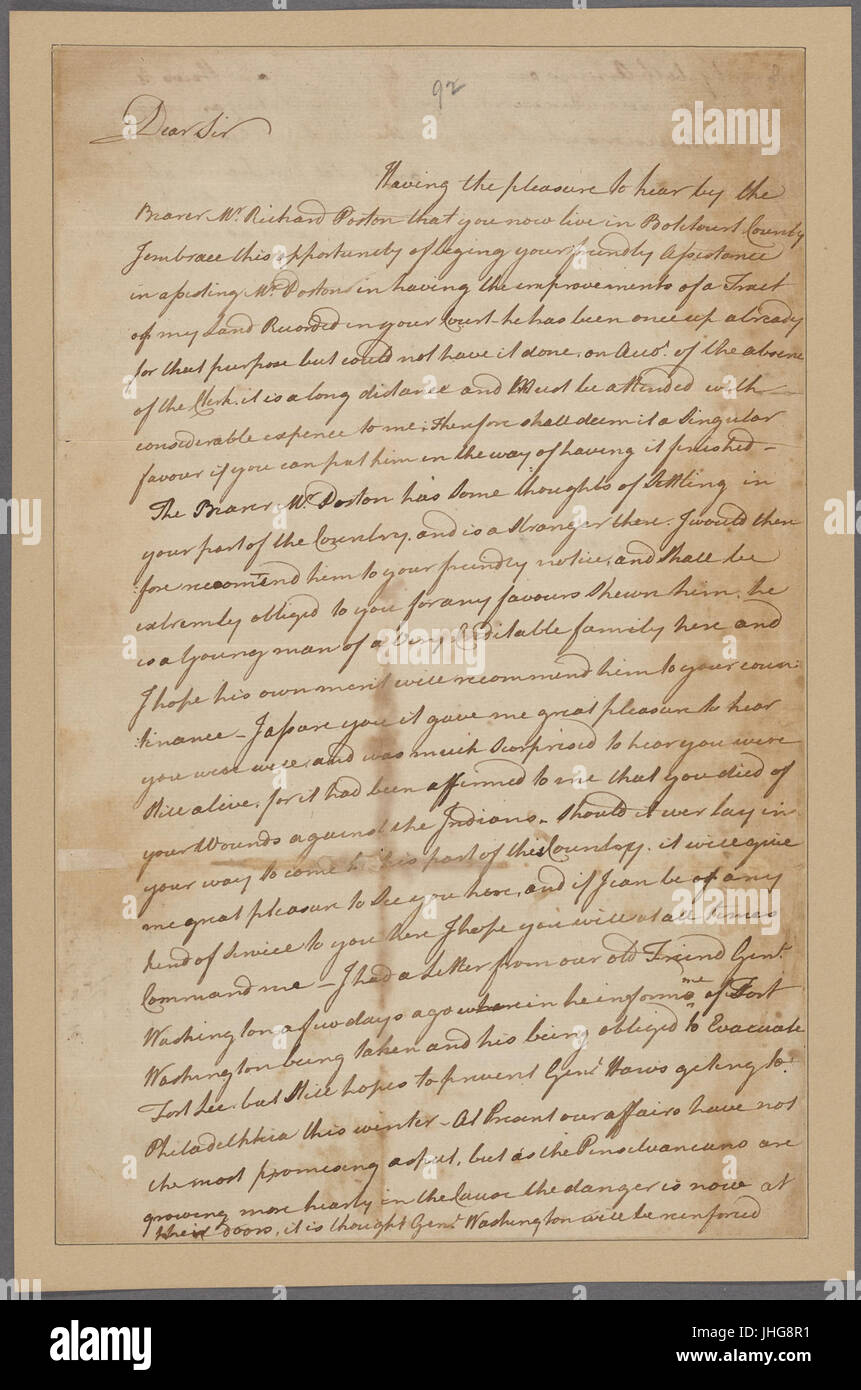 92
Dear Sir
Having the pleasure to hear by the
Bearer Mr. Richard Poston that you now live in Botetourt County
I embrace this opportunity of beging your friendly Assistance
in assisting Mr. Poston in having the improvements of a Tract
of my Land Recorded in your Court. he has been once up already
for that purpose but could not have it done, on Acco. of the absence
of the Clerk. it is a long distance and Must be attended with
considerable expence to me, Therefore shall deem it a Singular
favour if you can put him in the way of having it finished –
The Bearer Mr. Poston has some thoughts of Settling in
your part of the Country. and is a Stranger there. I would there
fore recomend him to your friendly notice, and shall be
extremly obliged to you for any favours Shewn him. he
is a Young man of a Very Creditable family here and
I hope his own merit will recommend him to your coun:
tinance – I assure you it gave me great pleasure to hear
you were well, and was much Surprised to hear you were
Still alive. for it had been affirmed to me that you died of
your Wounds against the Indians – Should it ever lay in
your way to come to this part of the Country. it will give
me great pleasure to See you here, and if I can be of any
kind of Service to you here I hope you will at all times
Command me – I had a Letter from our old Friend Genl.
Washington a few days ago wherein he informs me of Fort
Washington being taken and his being obliged to Evacuate
Fort Lee. but Still hopes to prevent Genl. Haws geting to
Philadelphia this winter – At Present our affairs have not
the most promising aspect, but as the Pensilvanians are
growing more hearty in the Cause the danger is now at
their doors, it is thought Genl. Washington will be reinforced
alamy
alamy stock photo
JHG8R1
www.alamy.com